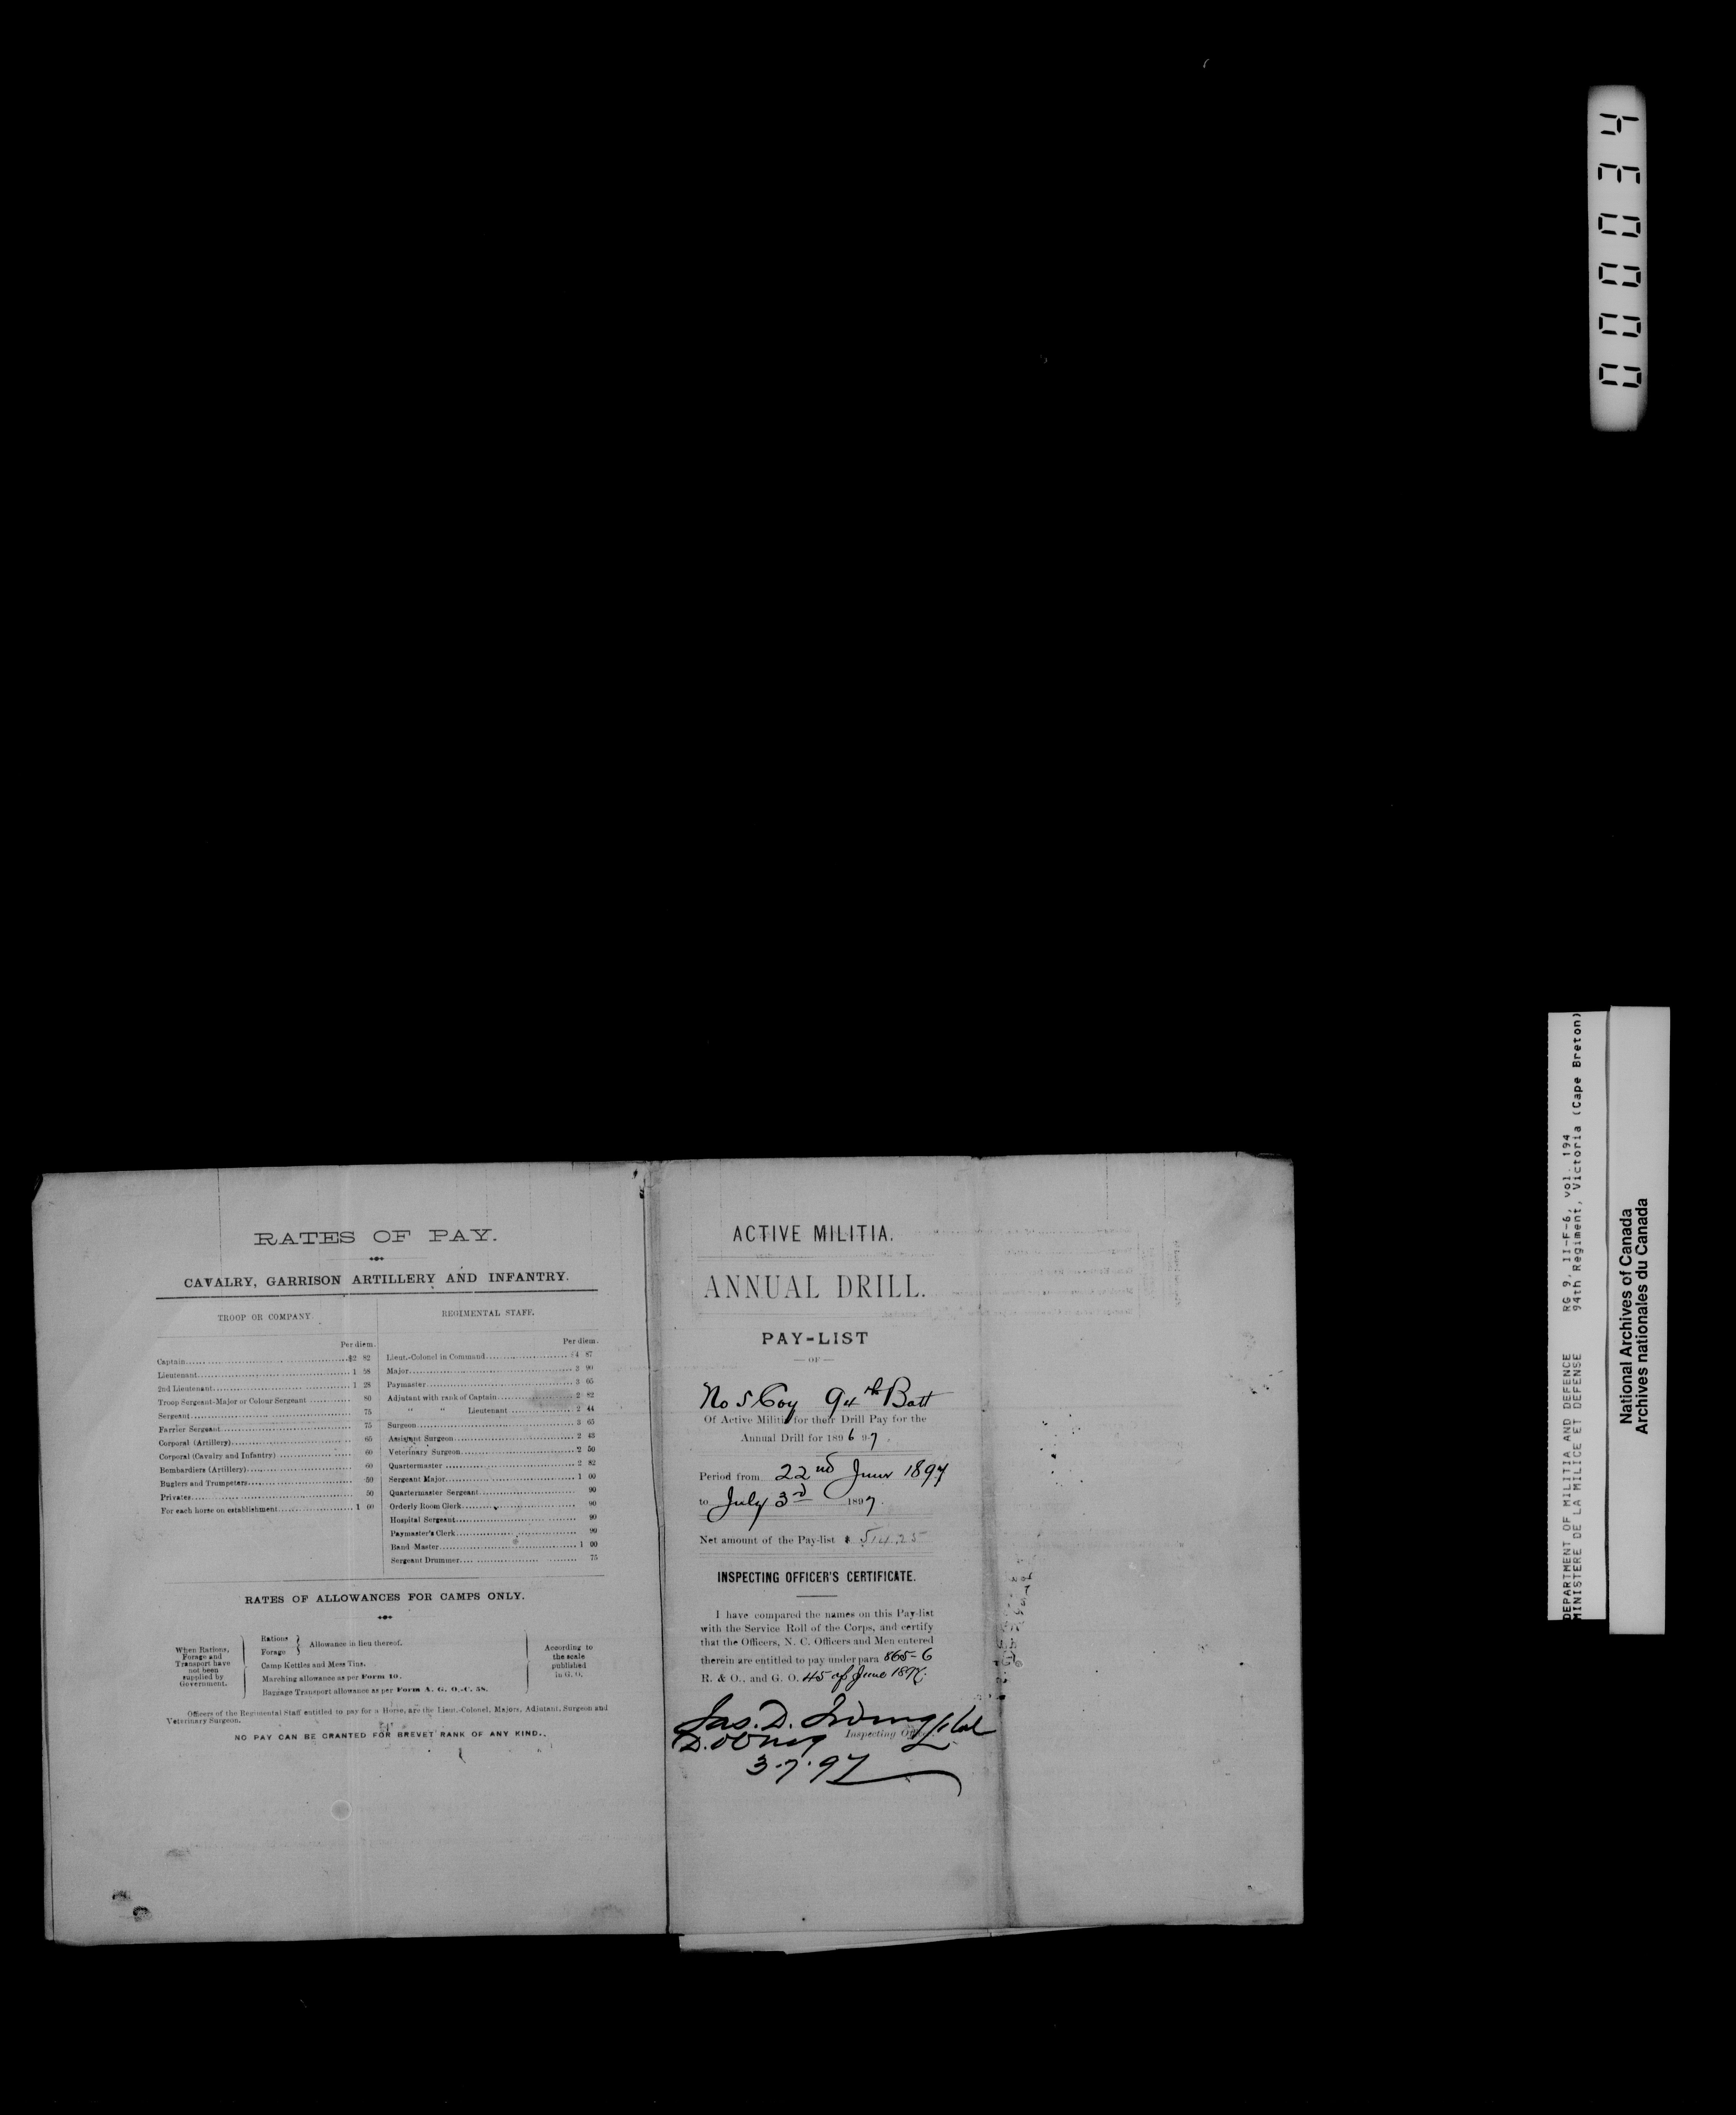 RATES OF PAY.
CAVALRY, GARRISON ARTILLERY AND INFANTRY.
TROOP OR COMPANY.
Per diem.
Captain $2 82
Lieutenant 1 58
2nd Lieutenant 1 28
Troop Sergeant-Major or Colour Sergeant 80
Sergeant 75
Farrier Sergeant 75
Corporal (Artillery) 65
Corporal (Cavalry and Infantry) 60
Bombardiers (Artillery) 60
Buglers and Trumpeters 50
Privates 50
For each horse on establishment 1 00
REGIMENTAL STAFF.
Per diem.
Lieut.-Colonel in Command $4 87
Major 3 90
Paymaster 3 05
Adjutant with rank of Captain 2 82
" " Lieutenant 2 44
Surgeon 3 65
Assistant Surgeon 2 43
Veterinary Surgeon 2 50
Quartermaster 2 82
Sergeant Major 1 00
Quartermaster Sergeant 90
Orderly Room Clerk 90
Hospital Sergeant 90
Paymaster's Clerk 90
Band Master 1 00
Sergeant Drummer 75
RATES OF ALLOWANCES FOR CAMPS ONLY.
When Rations, Forage and Transport have not been supplied by Government.
Rations
Forage
Allowance in lieu thereof.
Camp Kettles and Mess Tins.
Marching allowance as per Form 10.
Baggage Transport allowance as per Form A. G. O.-C. 58.
According to the scale published in G. O.
Officers of the Regimental Staff entitled to pay for a Horse, are the Lieut.-Colonel, Majors, Adjutant, Surgeon and
Veterinary Surgeon.
NO PAY CAN BE GRANTED FOR BREVET RANK OF ANY KIND.
ACTIVE MILITIA.
ANNUAL DRILL.
PAY-LIST
— OF —
No 5 Coy 94th Batt
Of Active Militia for their Drill Pay for the
Annual Drill for 1896 97.
Period from 22nd June 1897
to July 3rd 1897.
Net amount of the Pay-list $ 514.25
INSPECTING OFFICER'S CERTIFICATE.
I have compared the names on this Pay-list
with the Service Roll of the Corps, and certify
that the Officers, N. C. Officers and Men entered
therein are entitled to pay under para 865-6
R. & O., and G. O. 45 of June 1897.
Jas. D. Irving Lt Col
Inspecting Officer.
3.7.97
DEPARTMENT OF MILITIA AND DEFENCE RG 9, II-F-6, vol. 194
MINISTERE DE LA MILICE ET DEFENSE 94th Regiment, Victoria (Cape Breton)
National Archives of Canada
Archives nationales du Canada